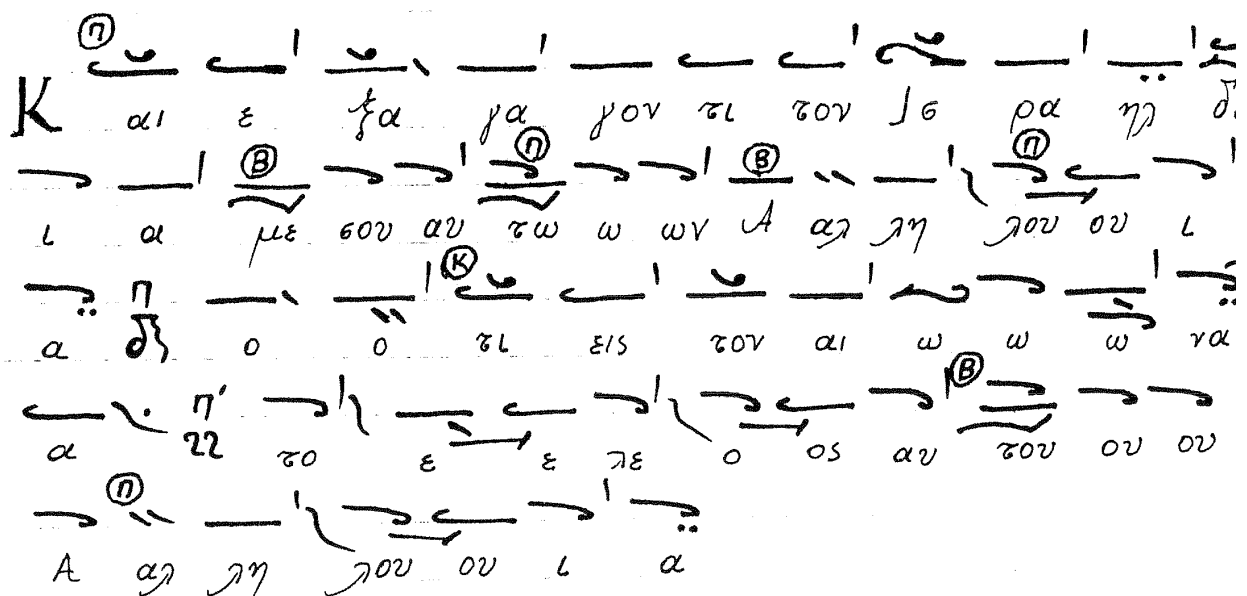 Π
Και ε ξα γα γον τι τον Ισ ρα ηλ
Β Π Β Π
ι α με σου αυ τω ω ων Α αλ λη λου ου ι
Π Κ
α ο ο τι εις τον αι ω ω ω να
Β
α Π' το ε ε λε ο ος αυ του ου ου
Π
Α αλ λη λου ου ι α